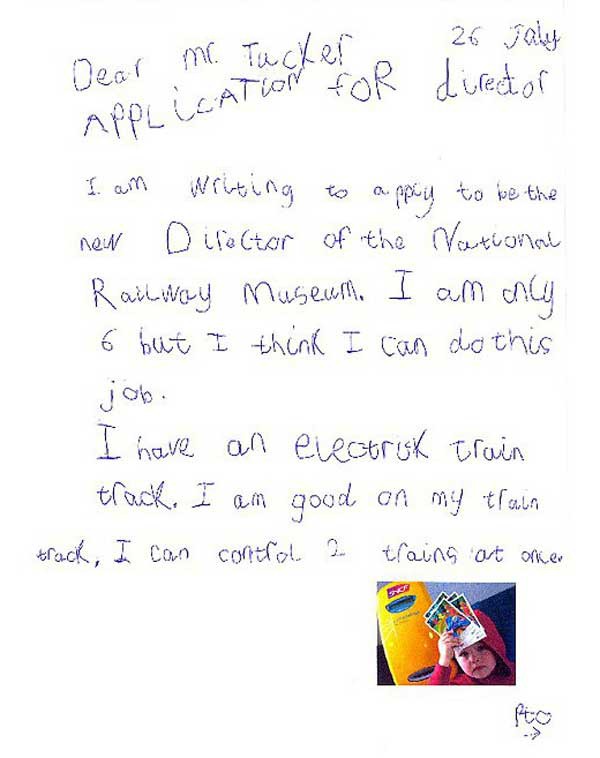 26 July
Dear Mr. Tucker
APPLiCATION foR director
I am writing to apply to be the
new Director of the National
Railway Museum. I am only
6 but I think I can do this
job.
I have an electrisk train
track. I am good on my train
track, I can control 2 trains at once
SNCF
Pto